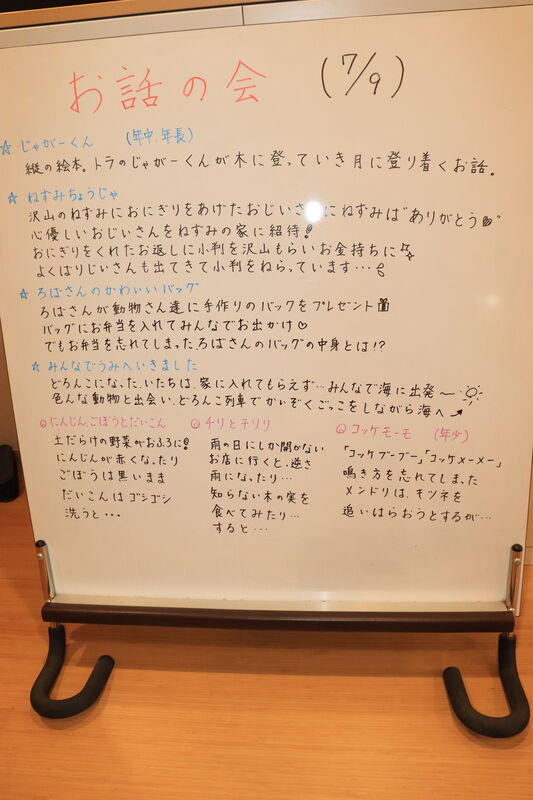 お話の会 (7/9)
☆ じゃがーくん (年中、年長)
縦の絵本。トラのじゃがーくんが木に登っていき月に登り着くお話。
☆ ねずみちょうじゃ
沢山のねずみにおにぎりをあげたおじいさんにねずみは"ありがとう♡"
心優しいおじいさんをねずみの家に招待!
おにぎりをくれたお返しに小判を沢山もらいお金持ちに
よくばりじいさんも出てきて小判をねらっています…
☆ ろばさんのかわいいバッグ
ろばさんが動物さん達に手作りのバックをプレゼント
バッグにお弁当を入れてみんなでお出かけ♡
でもお弁当を忘れてしまった、ろばさんのバッグの中身とは!?
☆ みんなでうみへいきました
どろんこになった、いたちは、家に入れてもらえず…みんなで海に出発〜
色んな動物と出会い、どろんこ列車でかいぞくごっこをしながら海へ
にんじん、ごぼうとだいこん
土だらけの野菜がおふろに!
にんじんが赤くなったり
ごぼうは黒いまま
だいこんはゴシゴシ
洗うと・・・
チリとチリリ
雨の日にしか開かない
お店に行くと、逆さ
雨になったり…
知らない木の実を
食べてみたり…
すると…
コッケモーモ (年少)
「コッケブーブー」「コッケメーメー」
鳴き方を忘れてしまった
メンドリは、キツネを
追いはらおうとするが…